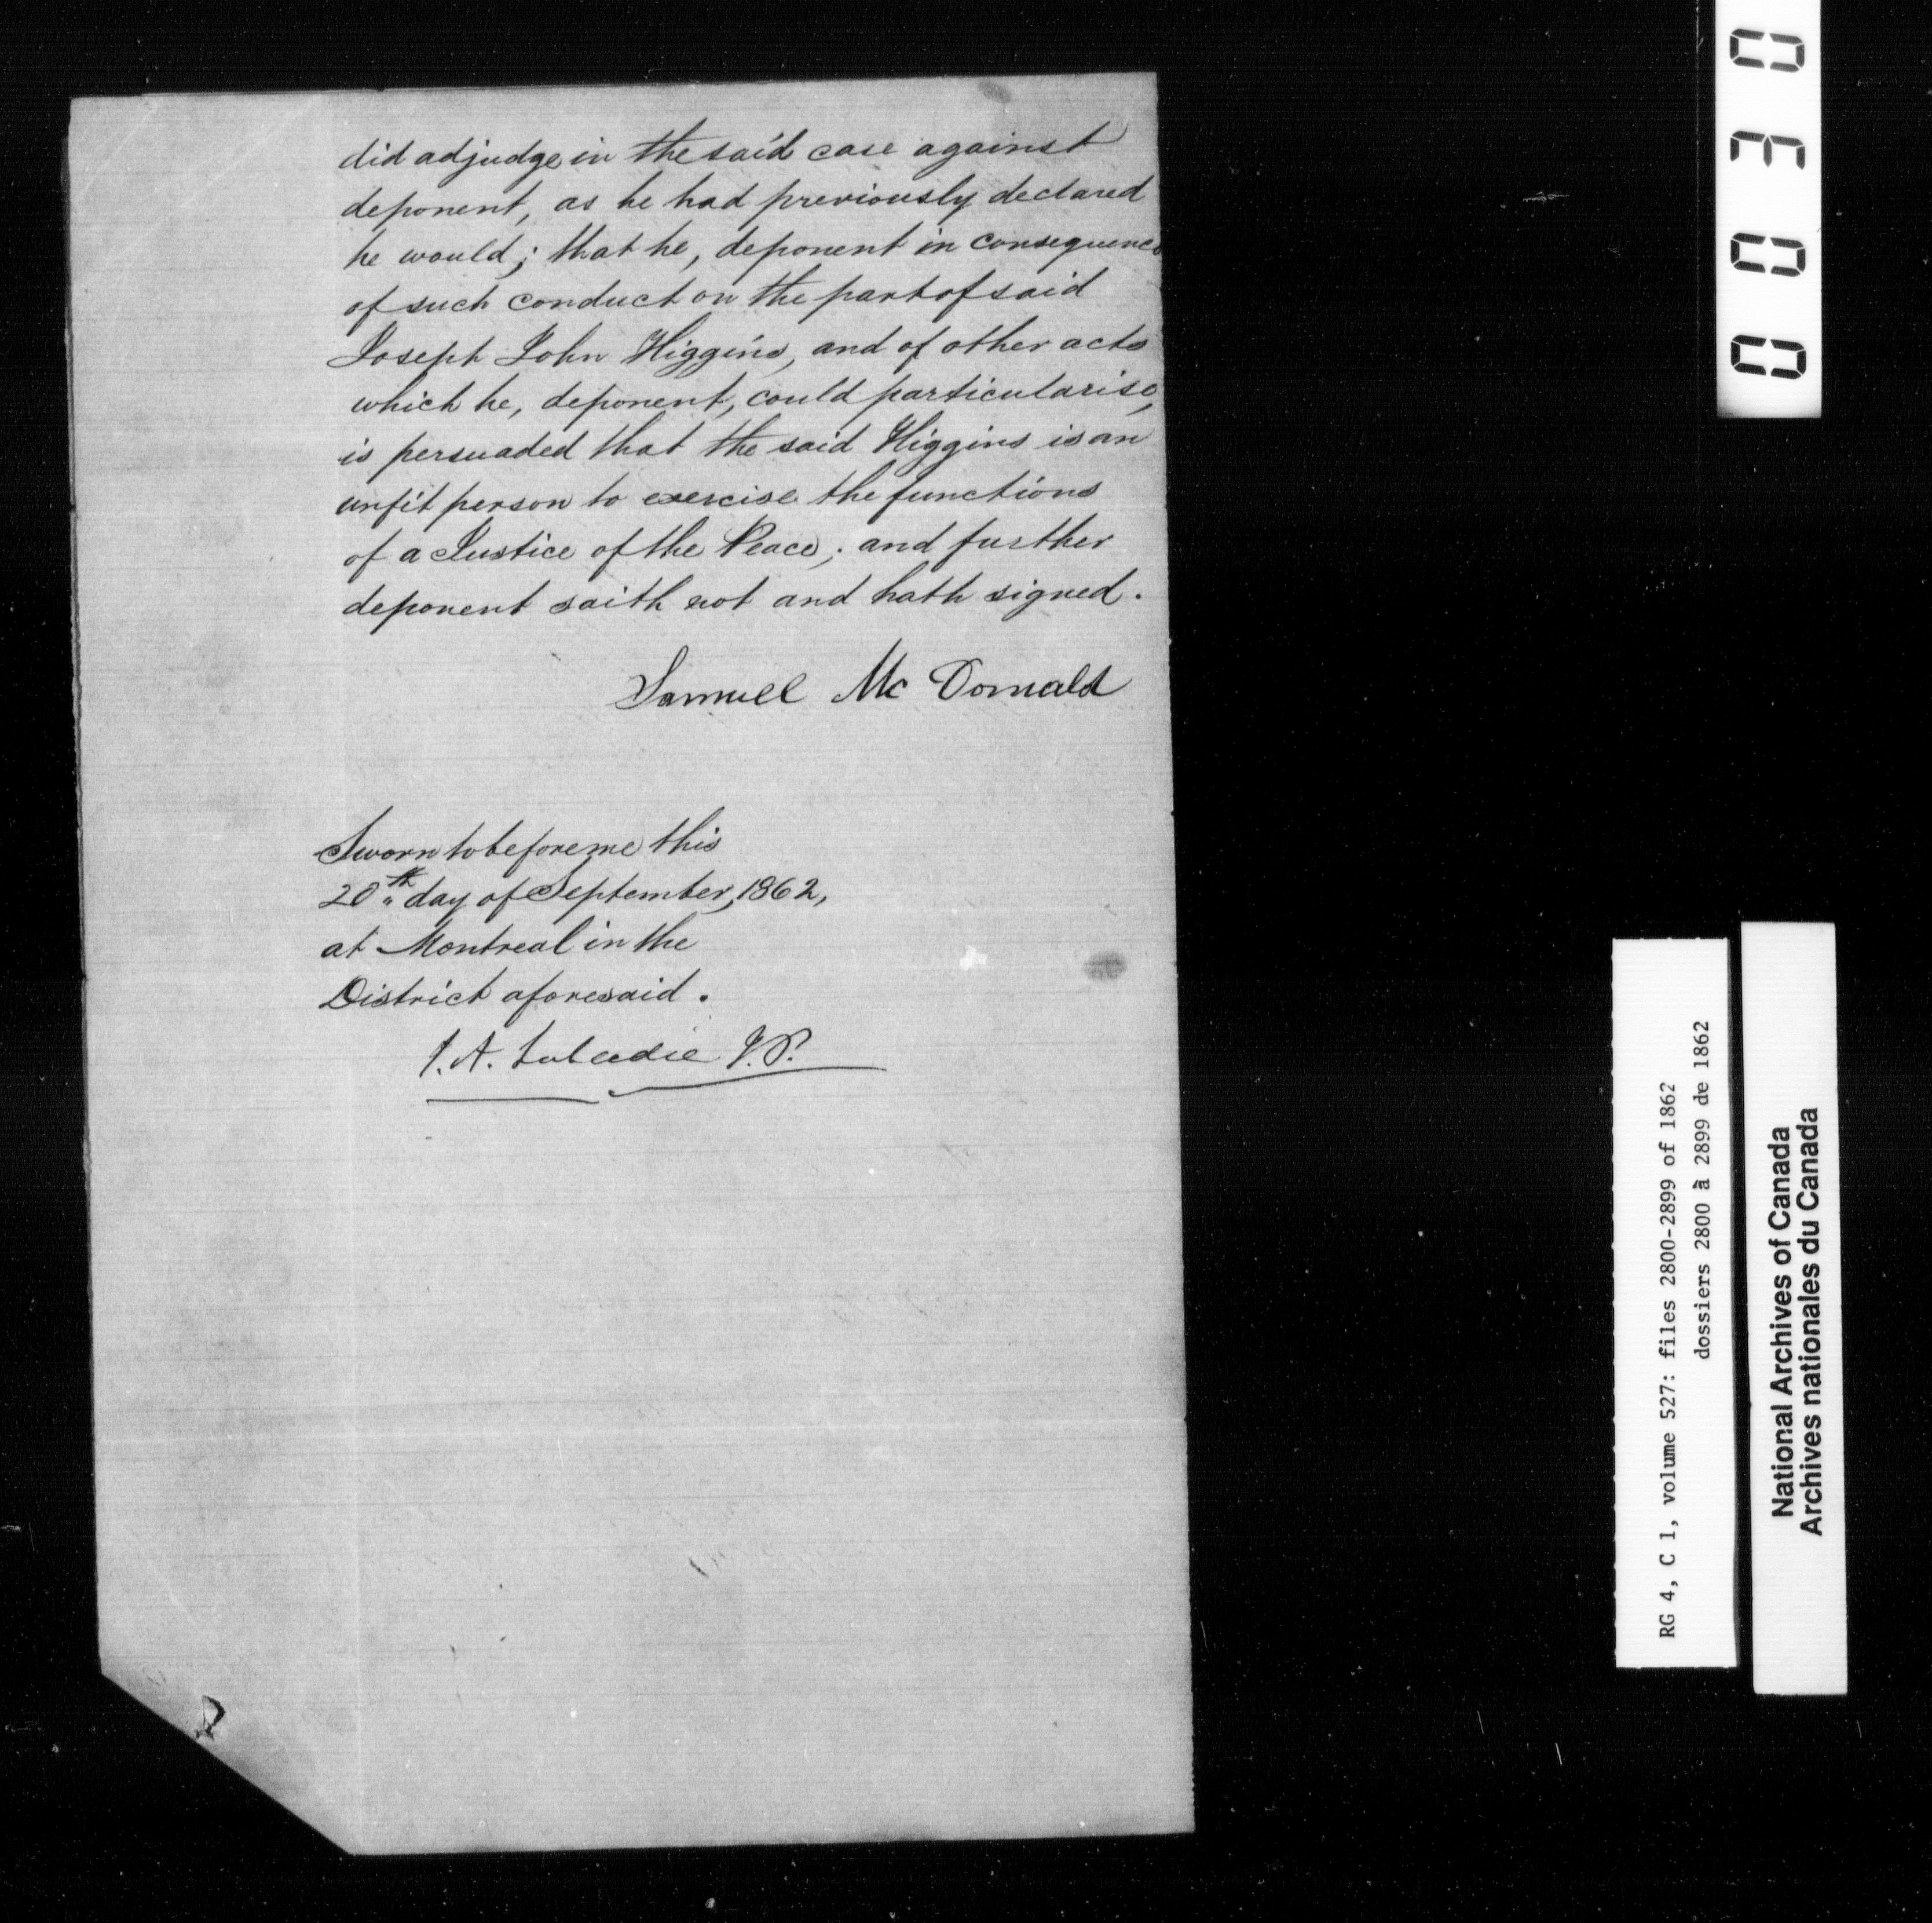 did adjudge in the said case against
deponent, as he had previously declared
he would; that he, deponent in consequence
of such conduct on the part of said
Joseph John Higgins, and of other acts
which he, deponent, could particularise,
is persuaded that the said Higgins is an
unfit person to exercise the functions
of a Justice of the Peace; and further
deponent saith not and hath signed.
Samuel Mc Donald
Sworn to before me this
20th day of September, 1862,
at Montreal in the
District aforesaid.
J. A. Labadie J.P.
0030
RG 4, C 1, volume 527: files 2800-2899 of 1862
dossiers 2800 à 2899 de 1862
National Archives of Canada
Archives nationales du Canada